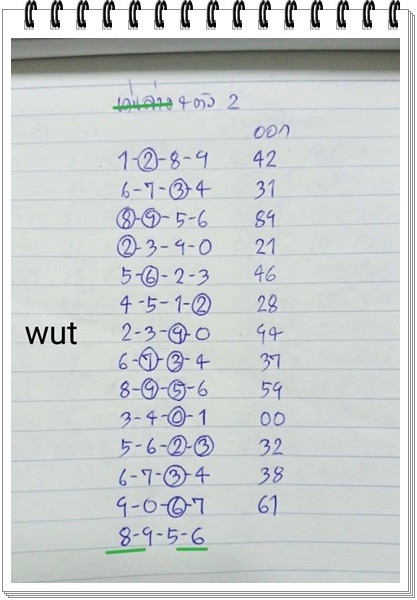 เด่นล่าง 4 ตัว 2
ออก
1-2-8-9 42
6-7-3-4 31
8-9-5-6 89
2-3-9-0 21
5-6-2-3 46
4-5-1-2 28
2-3-9-0 94
wut
6-7-3-4 37
8-9-5-6 59
3-4-0-1 00
5-6-2-3 32
6-7-3-4 38
9-0-6-7 61
8-9-5-6